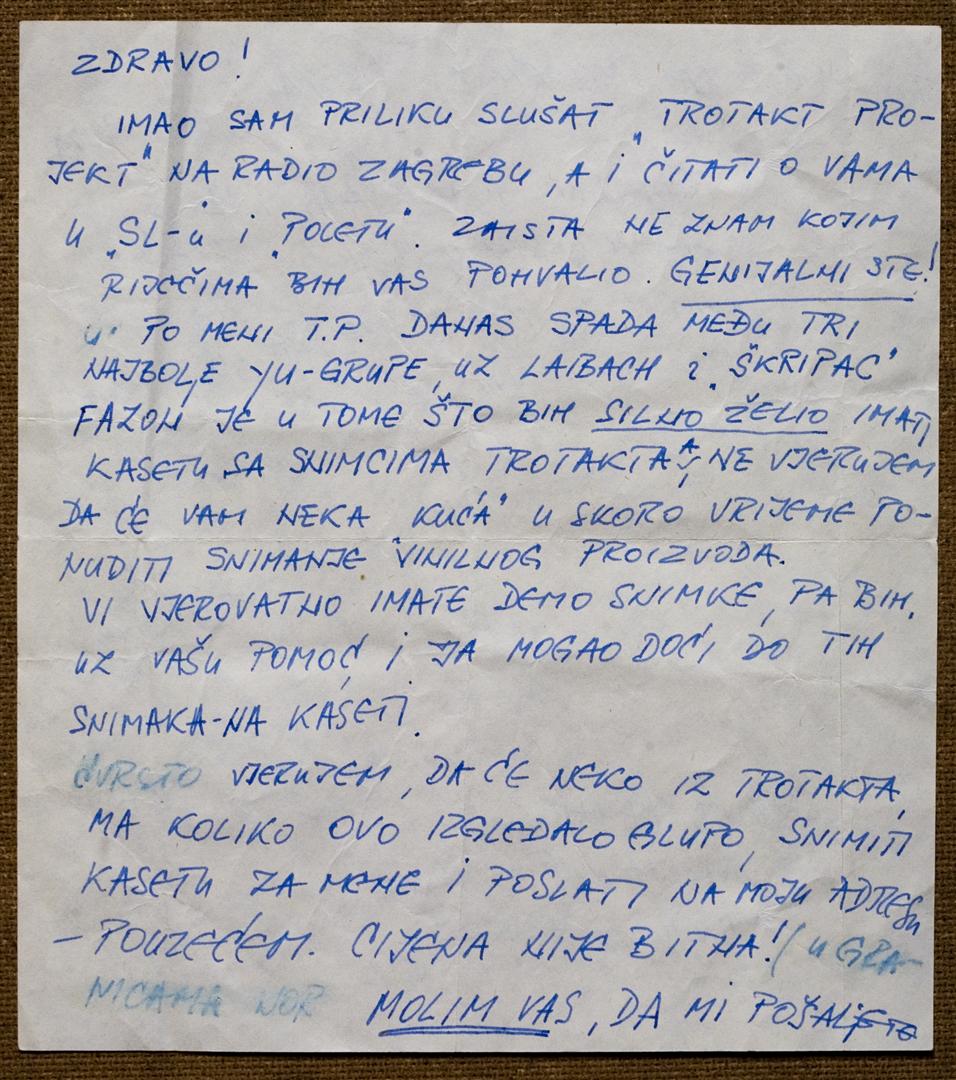 ZDRAVO!
IMAO SAM PRILIKU SLUŠAT „TROTAKT PRO-
JEKT" NA RADIO ZAGREBU, A I ČITATI O VAMA
U „SL-u" i „POLETU". ZAISTA NE ZNAM KOJIM
RIJEČIMA BIH VAS POHVALIO. GENIJALNI STE!
PO MENI T.P. DANAS SPADA MEĐU TRI
NAJBOLJE YU-GRUPE, UZ LAIBACH i „ŠKRIPAC"
FAZON JE U TOME ŠTO BIH SILNO ŽELIO IMATI
KASETU SA SNIMCIMA TROTAKTA, A NE VJERUJEM
DA ĆE VAM NEKA „KUĆA" U SKORO VRIJEME PO-
NUDITI SNIMANJE VINILNOG PROIZVODA.
VI VJEROVATNO IMATE DEMO SNIMKE, PA BIH,
UZ VAŠU POMOĆ, I JA MOGAO DOĆI DO TIH
SNIMAKA-NA KASETI.
ČVRSTO VJERUJEM, DA ĆE NEKO IZ TROTAKTA,
MA KOLIKO OVO IZGLEDALO GLUPO, SNIMITI
KASETU ZA MENE I POSLATI NA MOJU ADRESU
– POUZEĆEM. CIJENA NIJE BITNA! (U GRA-
NICAMA NOR
MOLIM VAS, DA MI POŠALJETE